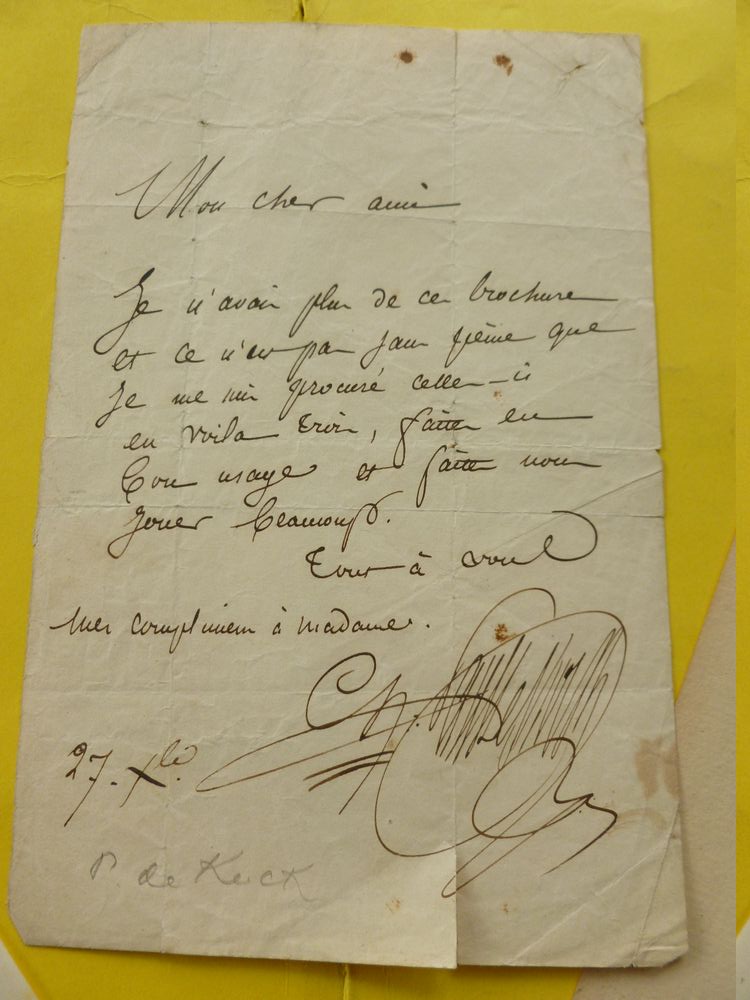 Mon cher ami
Je n'avais plus de ces brochures
et ce n'est pas sans peine que
Je me suis procuré celles-ci
en voila trois, faites en
bon usage et faites nous
Jouer beaucoup.
Tout à vous
mes complimens à madame.
Ch.
27. Xbre
P. de Kock